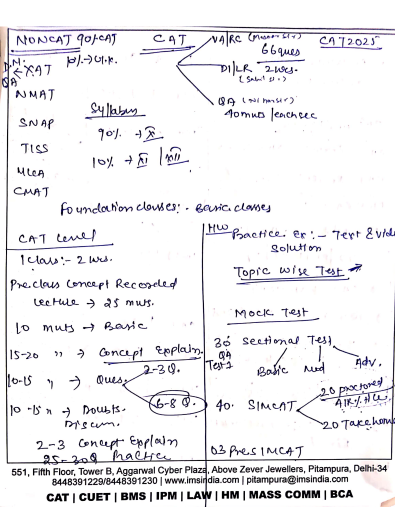 NONCAT 90%CAT
CAT
VA/RC
CAT2025
66ques
10%→
XAT
QA
DI/LR 2hrs.
NMAT
QA
40muts /each sec
SNAP
Syllabus
90% → X
TISS
10% → XI / XII
CMAT
Foundation classes:- Basic classes
CAT Level
1 class:- 2 hrs.
Pre class Concept Recorded
lecture → 25 muts.
10 muts → Basic
15-20 " → Concept Explain.
2-3Q.
10-15 " → Ques.
6-8 Q.
10-15 " → Doubts.
Discuss.
2-3 Concept Explain
25-30Q Practice
HW Practice Ex:- Text & Video
Solution
Topic wise Test
Mock Test
30 Sectional Test
QA
Test-1
Basic Mod Adv.
40. SIMCAT
20 proctored
20 Take home
03 Pre SIMCAT
551, Fifth Floor, Tower B, Aggarwal Cyber Plaza, Above Zever Jewellers, Pitampura, Delhi-34
8448391229/8448391230 | www.imsindia.com | pitampura@imsindia.com
CAT | CUET | BMS | IPM | LAW | HM | MASS COMM | BCA